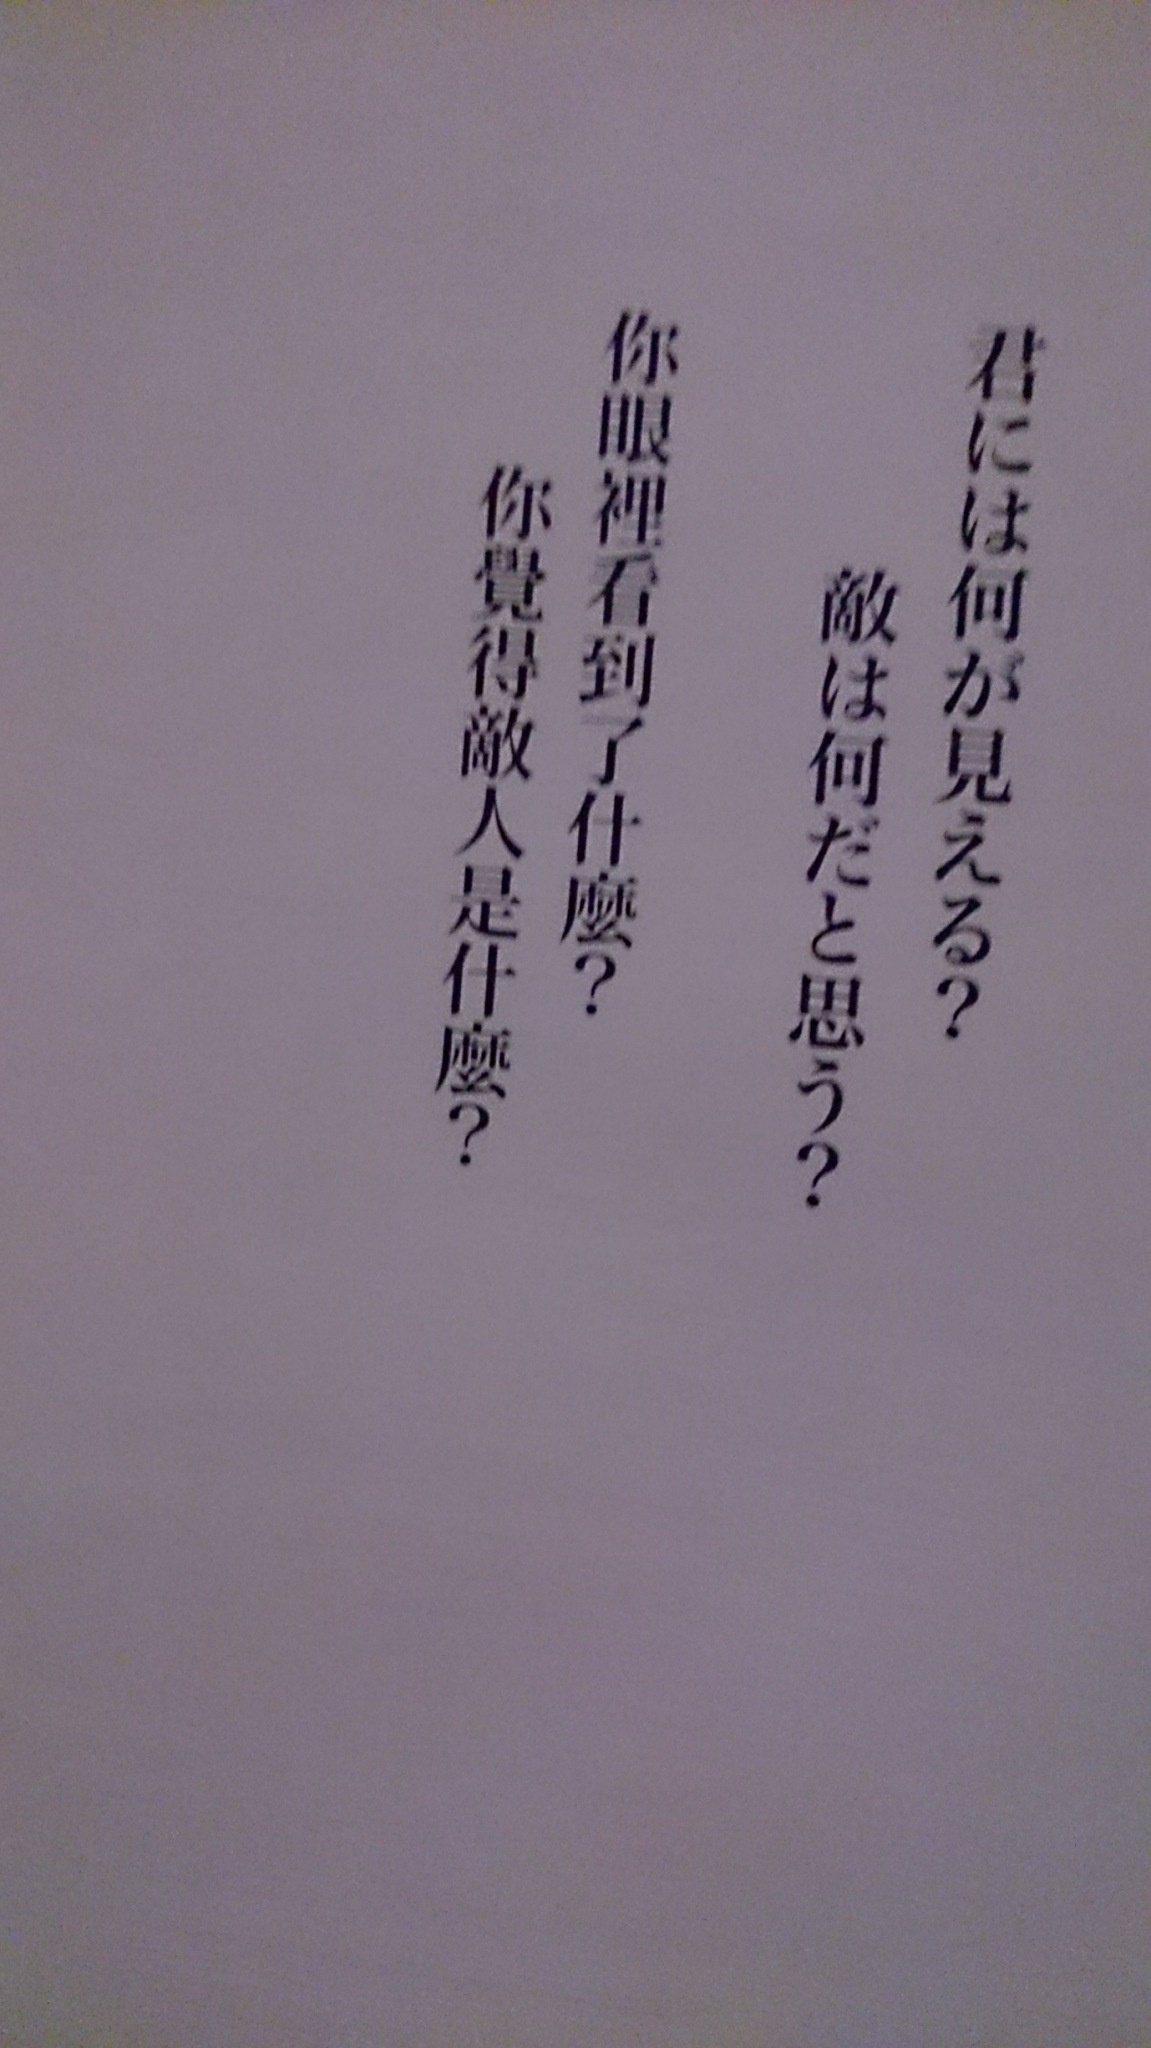 君には何が見える?
敵は何だと思う?
你眼裡看到了什麼?
你覺得敵人是什麼?